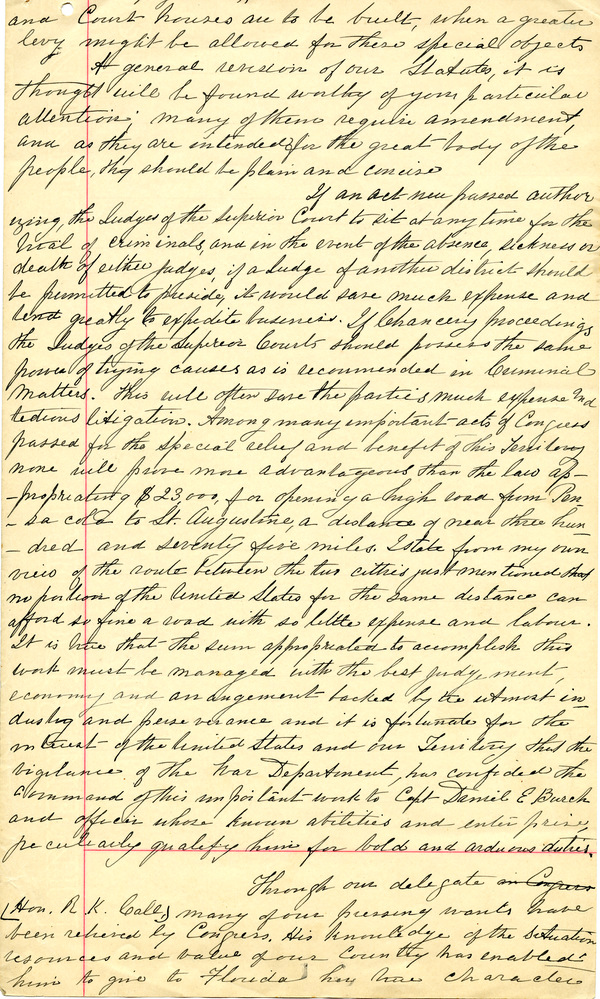 and Court houses are to be built, when a greater
levy might be allowed for these special objects
A general revision of our Statutes, it is
thought will be found worthy of your particular
attention; many of them require amendment,
and as they are intended for the great body of the
people, they should be plain and concise
If an act was passed author
izing, the Judges of the Superior Court to sit at any time for the
trial of criminals, and in the event of the absence, sickness or
death of either judges, if a Judge of another district should
be permitted to preside, it would save much expense and
tend greatly to expedite business. If Chancery proceedings
the Judges of the Superior Courts should possess the same
power of trying causes as is recommended in Criminal
Matters. This will often save the parties much expense and
tedious litigation. Among many important acts of Congress
passed for the special relief and benefit of this Territory
none will prove more advantageous than the law ap-
-propriating $23,000, for opening a high road from Pen-
-sa cola to St. Augustine, a distance of near three hun
-dred and seventy five miles. I state from my own
view of the route between the two citties just mentioned that
no portion of the United States for the same distance can
afford so fine a road with so little expense and labour.
It is true that the sum appropriated to accomplish this
work must be managed with the best judg ment,
economy and arrangement backed by the utmost in
dustry and perseverance and it is fortunate for the
interest of the United States and our Territory that the
vigilance of the War Department, has confided the
Command of this important work to Capt Daniel E. Burch
and officer whose known abilities and enter prise,
peculiarly qualify him for bold and arduous duties.
Through our delegate in Congress
[Hon. R. K. Call,] many of our pressing wants have
been relieved by Congress. His knowledge of the situation
resources and value of our Country has enabled
him to give to Florida her true character